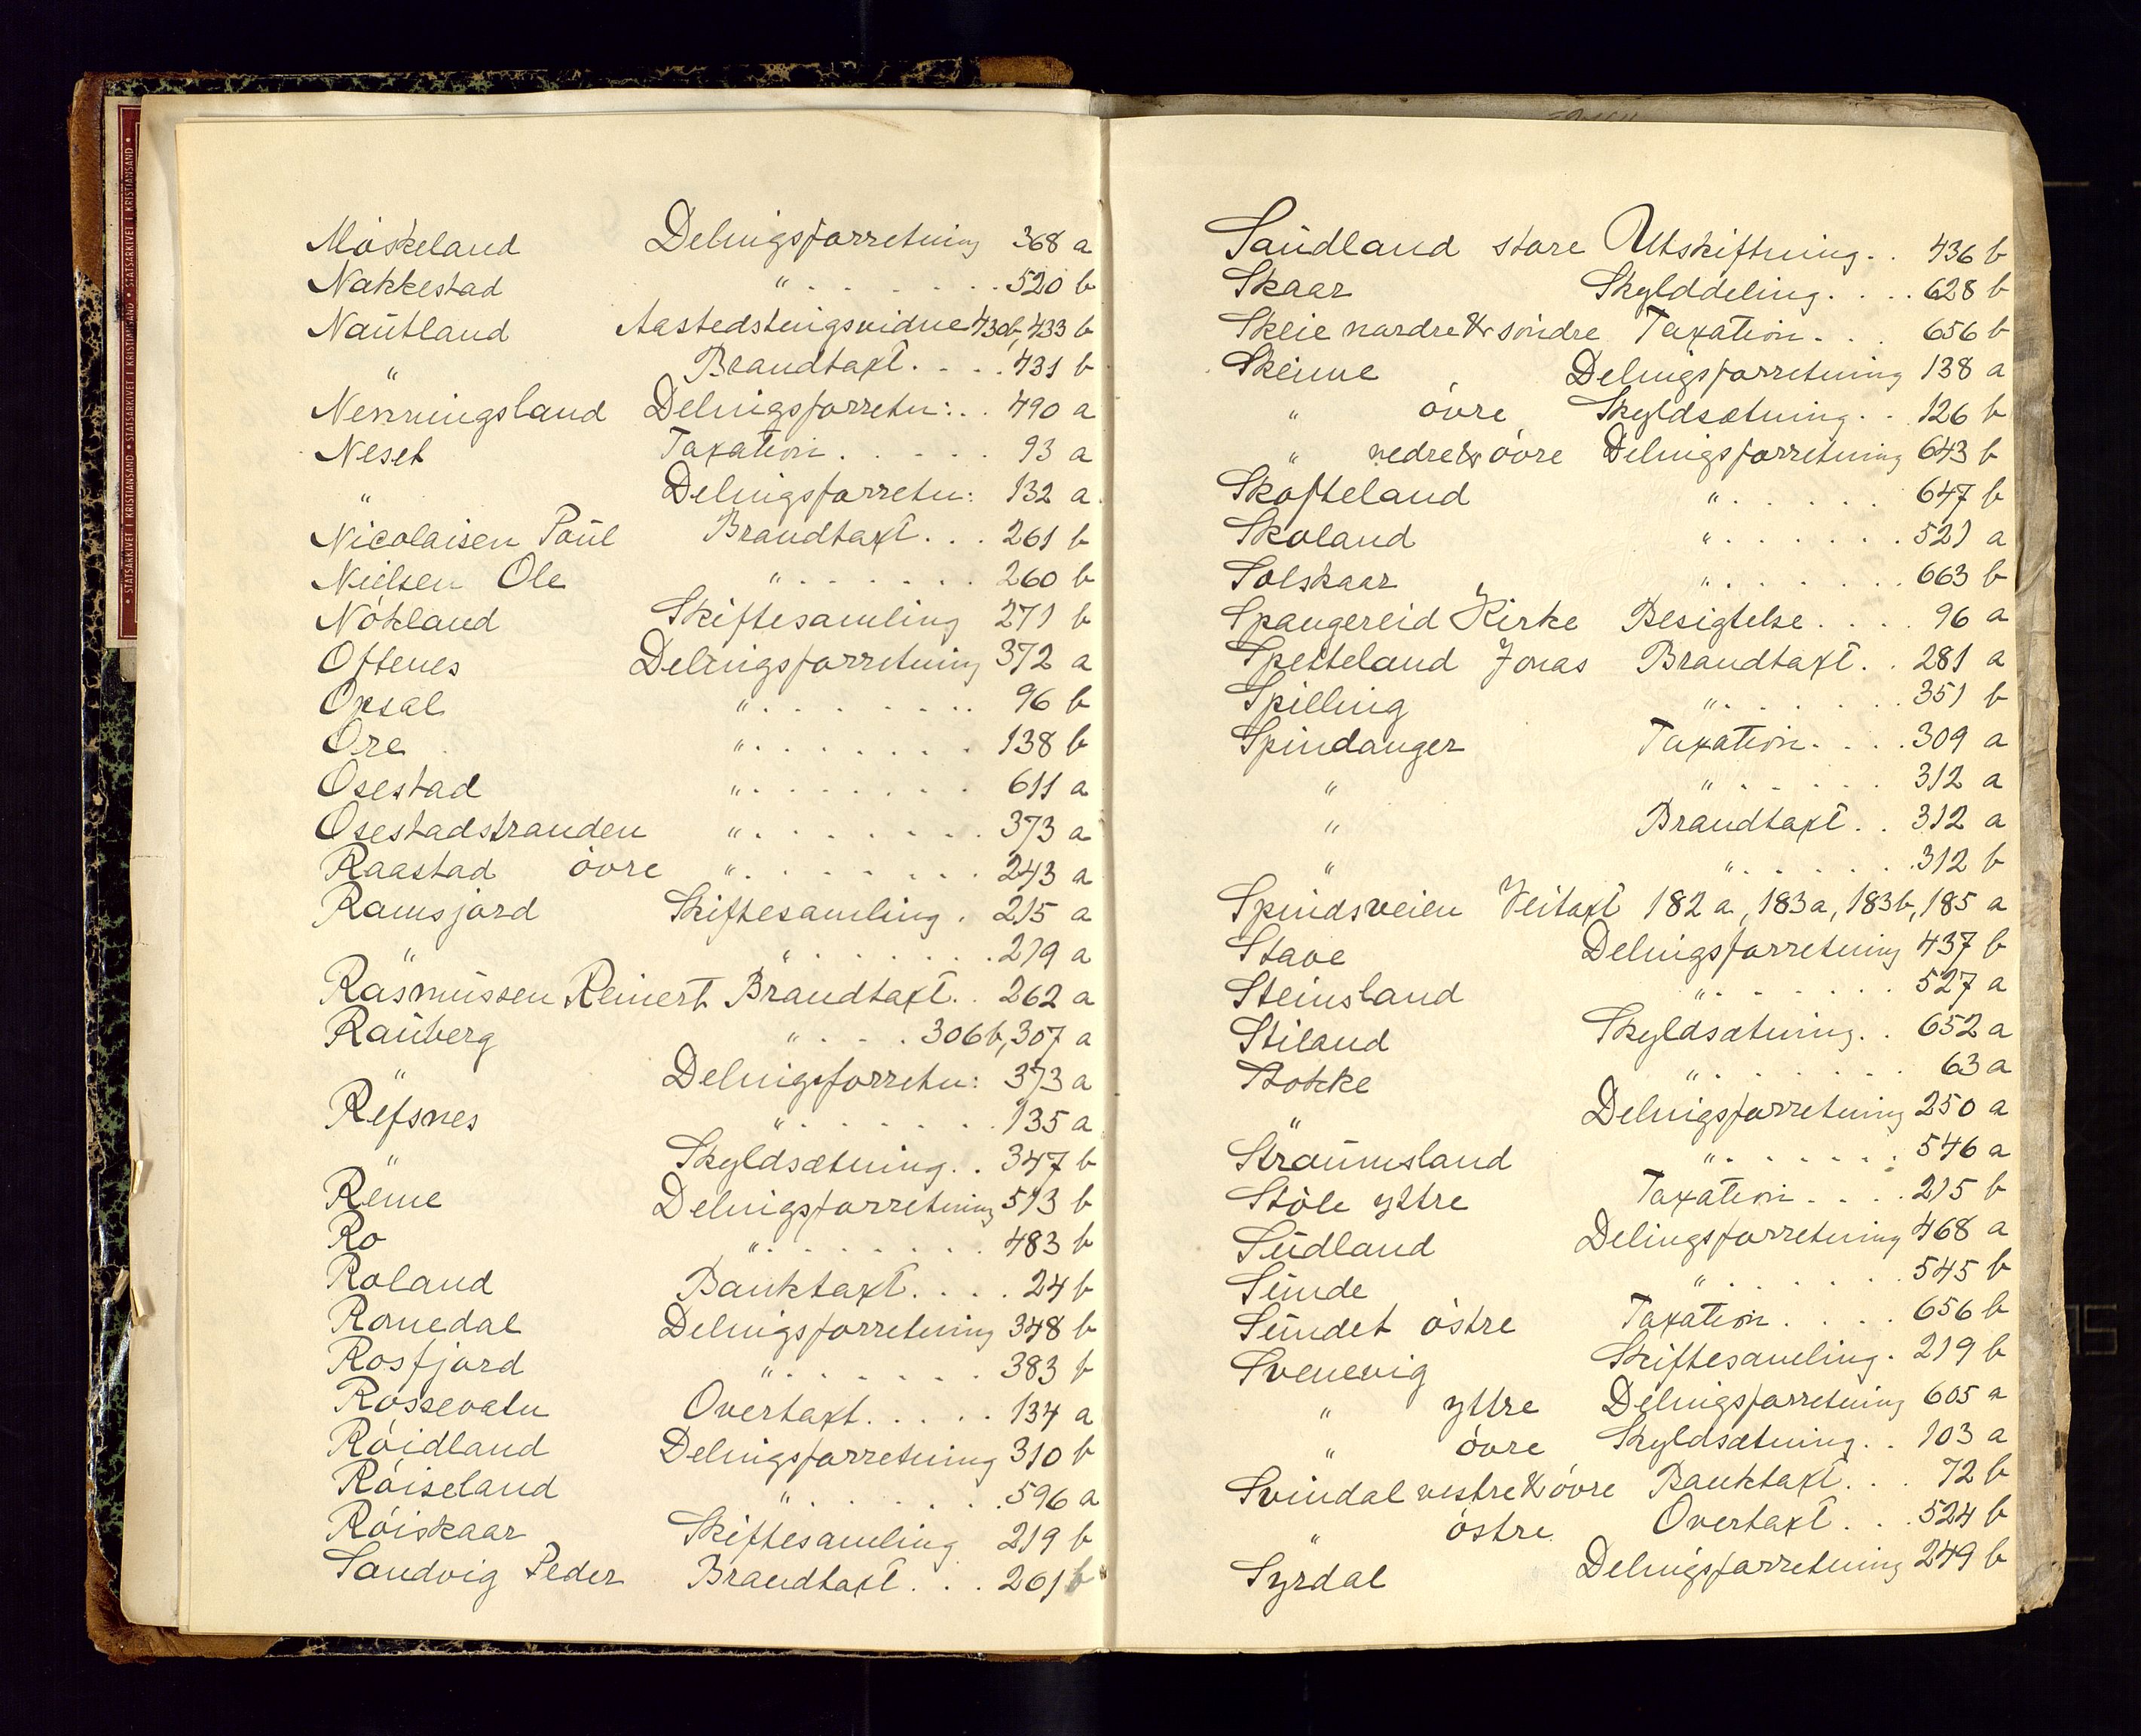 STATSARKIVET I KRISTIANSAND • STATSARKIVET I KRISTIANSAND • STATSARKIVET I KRISTIANSAND •
Möskeland Delingsforretning 368 a
Nakkestad " 520 b
Nautland Aastedstingsvidne 430b, 433 b
" Brandtaxt. 431 b
Nenningsland Delingsforretn: 490 a
Neset Taxation 93 a
" Delingsforretn: 132 a
Nicolaisen Poul Brandtaxt 261 b
Nielsen Ole " 260 b
Nökland Skiftesamling 271 b
Oftenes Delingsforretning 372 a
Opsal " 96 b
Ore " 138 b
Osestad " 611 a
Osestadstranden " 373 a
Raastad övre " 243 a
Ramsjord Skiftesamling 215 a
" " 219 a
Rasmussen Reinert Brandtaxt 262 a
Rauberg " 306b, 307 a
" Delingsforretn: 373 a
Refsnes " 135 a
" Skyldsætning 347 b
Reme Delingsforretning 513 b
Ro " 483 b
Roland Banktaxt 24 b
Romedal Delingsforretning 348 b
Rosfjord " 383 b
Rossevatn Overtaxt 134 a
Röidland Delingsforretning 310 b
Röiseland " 596 a
Röiskaar Skiftesamling 219 b
Sandvig Peder Brandtaxt 261 b
Saudland store Utskiftning 436 b
Skaar Skylddeling 628 b
Skeie nordre & söndre Taxation 656 b
Skeime Delingsforretning 138 a
" övre Skyldsætning 126 b
" nedre & övre Delingsforretning 643 b
Skofteland " 647 b
Skoland " 521 a
Solskaar " 663 b
Spangereid Kirke Besigtelse 96 a
Spetteland Jonas Brandtaxt 281 a
Spilling " 351 b
Spindanger Taxation 309 a
" " 312 a
" Brandtaxt 312 a
" " 312 b
Spindsveien Veitaxt 182 a, 183 a, 183 b, 185 a
Stave Delingsforretning 437 b
Steinsland " 527 a
Stiland Skyldsætning 652 a
Stokke " 63 a
" Delingsforretning 250 a
Straumsland " 546 a
Stöle yttre Taxation 215 b
Sudland Delingsforretning 468 a
Sunde " 545 b
Sundet östre Taxation 656 b
Svenevig Skiftesamling 219 b
" yttre Delingsforretning 605 a
" övre Skyldsætning 103 a
Svindal vestre & övre Banktaxt 72 b
" östre Overtaxt 524 b
Syrdal Delingsforretning 249 b